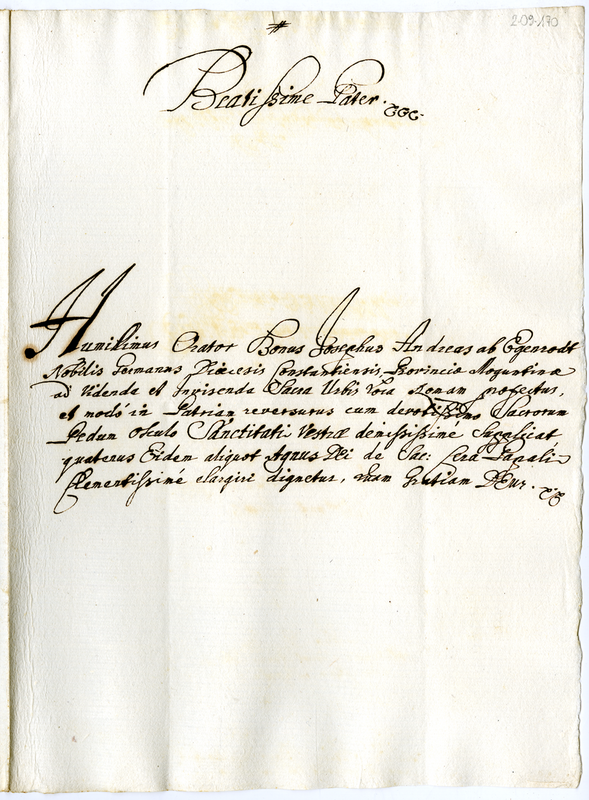 2-09-170
Beatissime Pater.
Humilimus Orator Bonus Josephus Andreas ab Egenrodt
Nobilis Germanus Diœcesis Constantiensis, Provinciæ Moguntinæ
ad Videnda et Invisenda Sacra Urbis Romam profectus,
et modò in Patriam reversurus cum devotissimo Sacrorum
Pedum Osculo Sanctitati Vestræ demississimé Supplicat
quatenus Eidem aliquot Agnus Dei de Sac: Cera Papali
Clementissimé elargiri dignetur, quam Gratiam Deus.